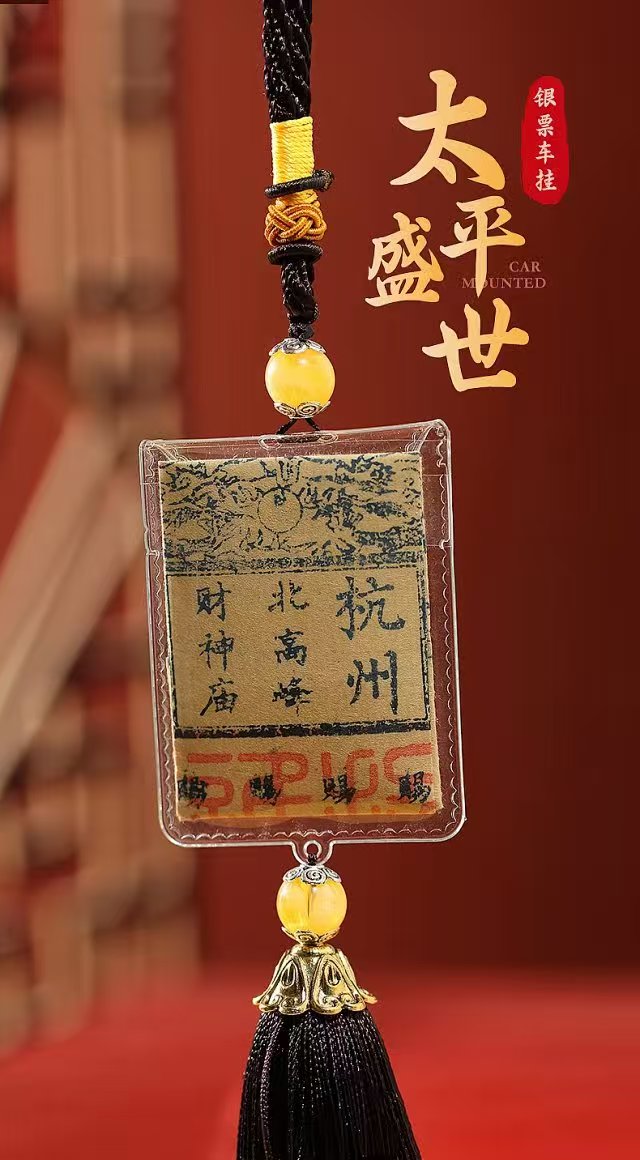 银票车挂
太平
盛世
CAR
MOUNTED
杭州
北高峰
财神庙
赐 赐 赐 赐